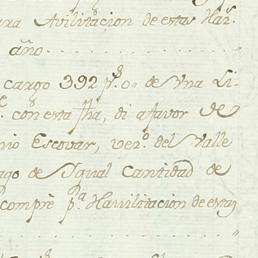 ara Avilitacion de estas Har.
año
cargo 392 p.s 0 r.s de Vna Li-
con esta fha, di afavor de
nio Escovar, vez.o del Valle
ago de Ygual Cantidad de
compre p.a Havilitacion de estas